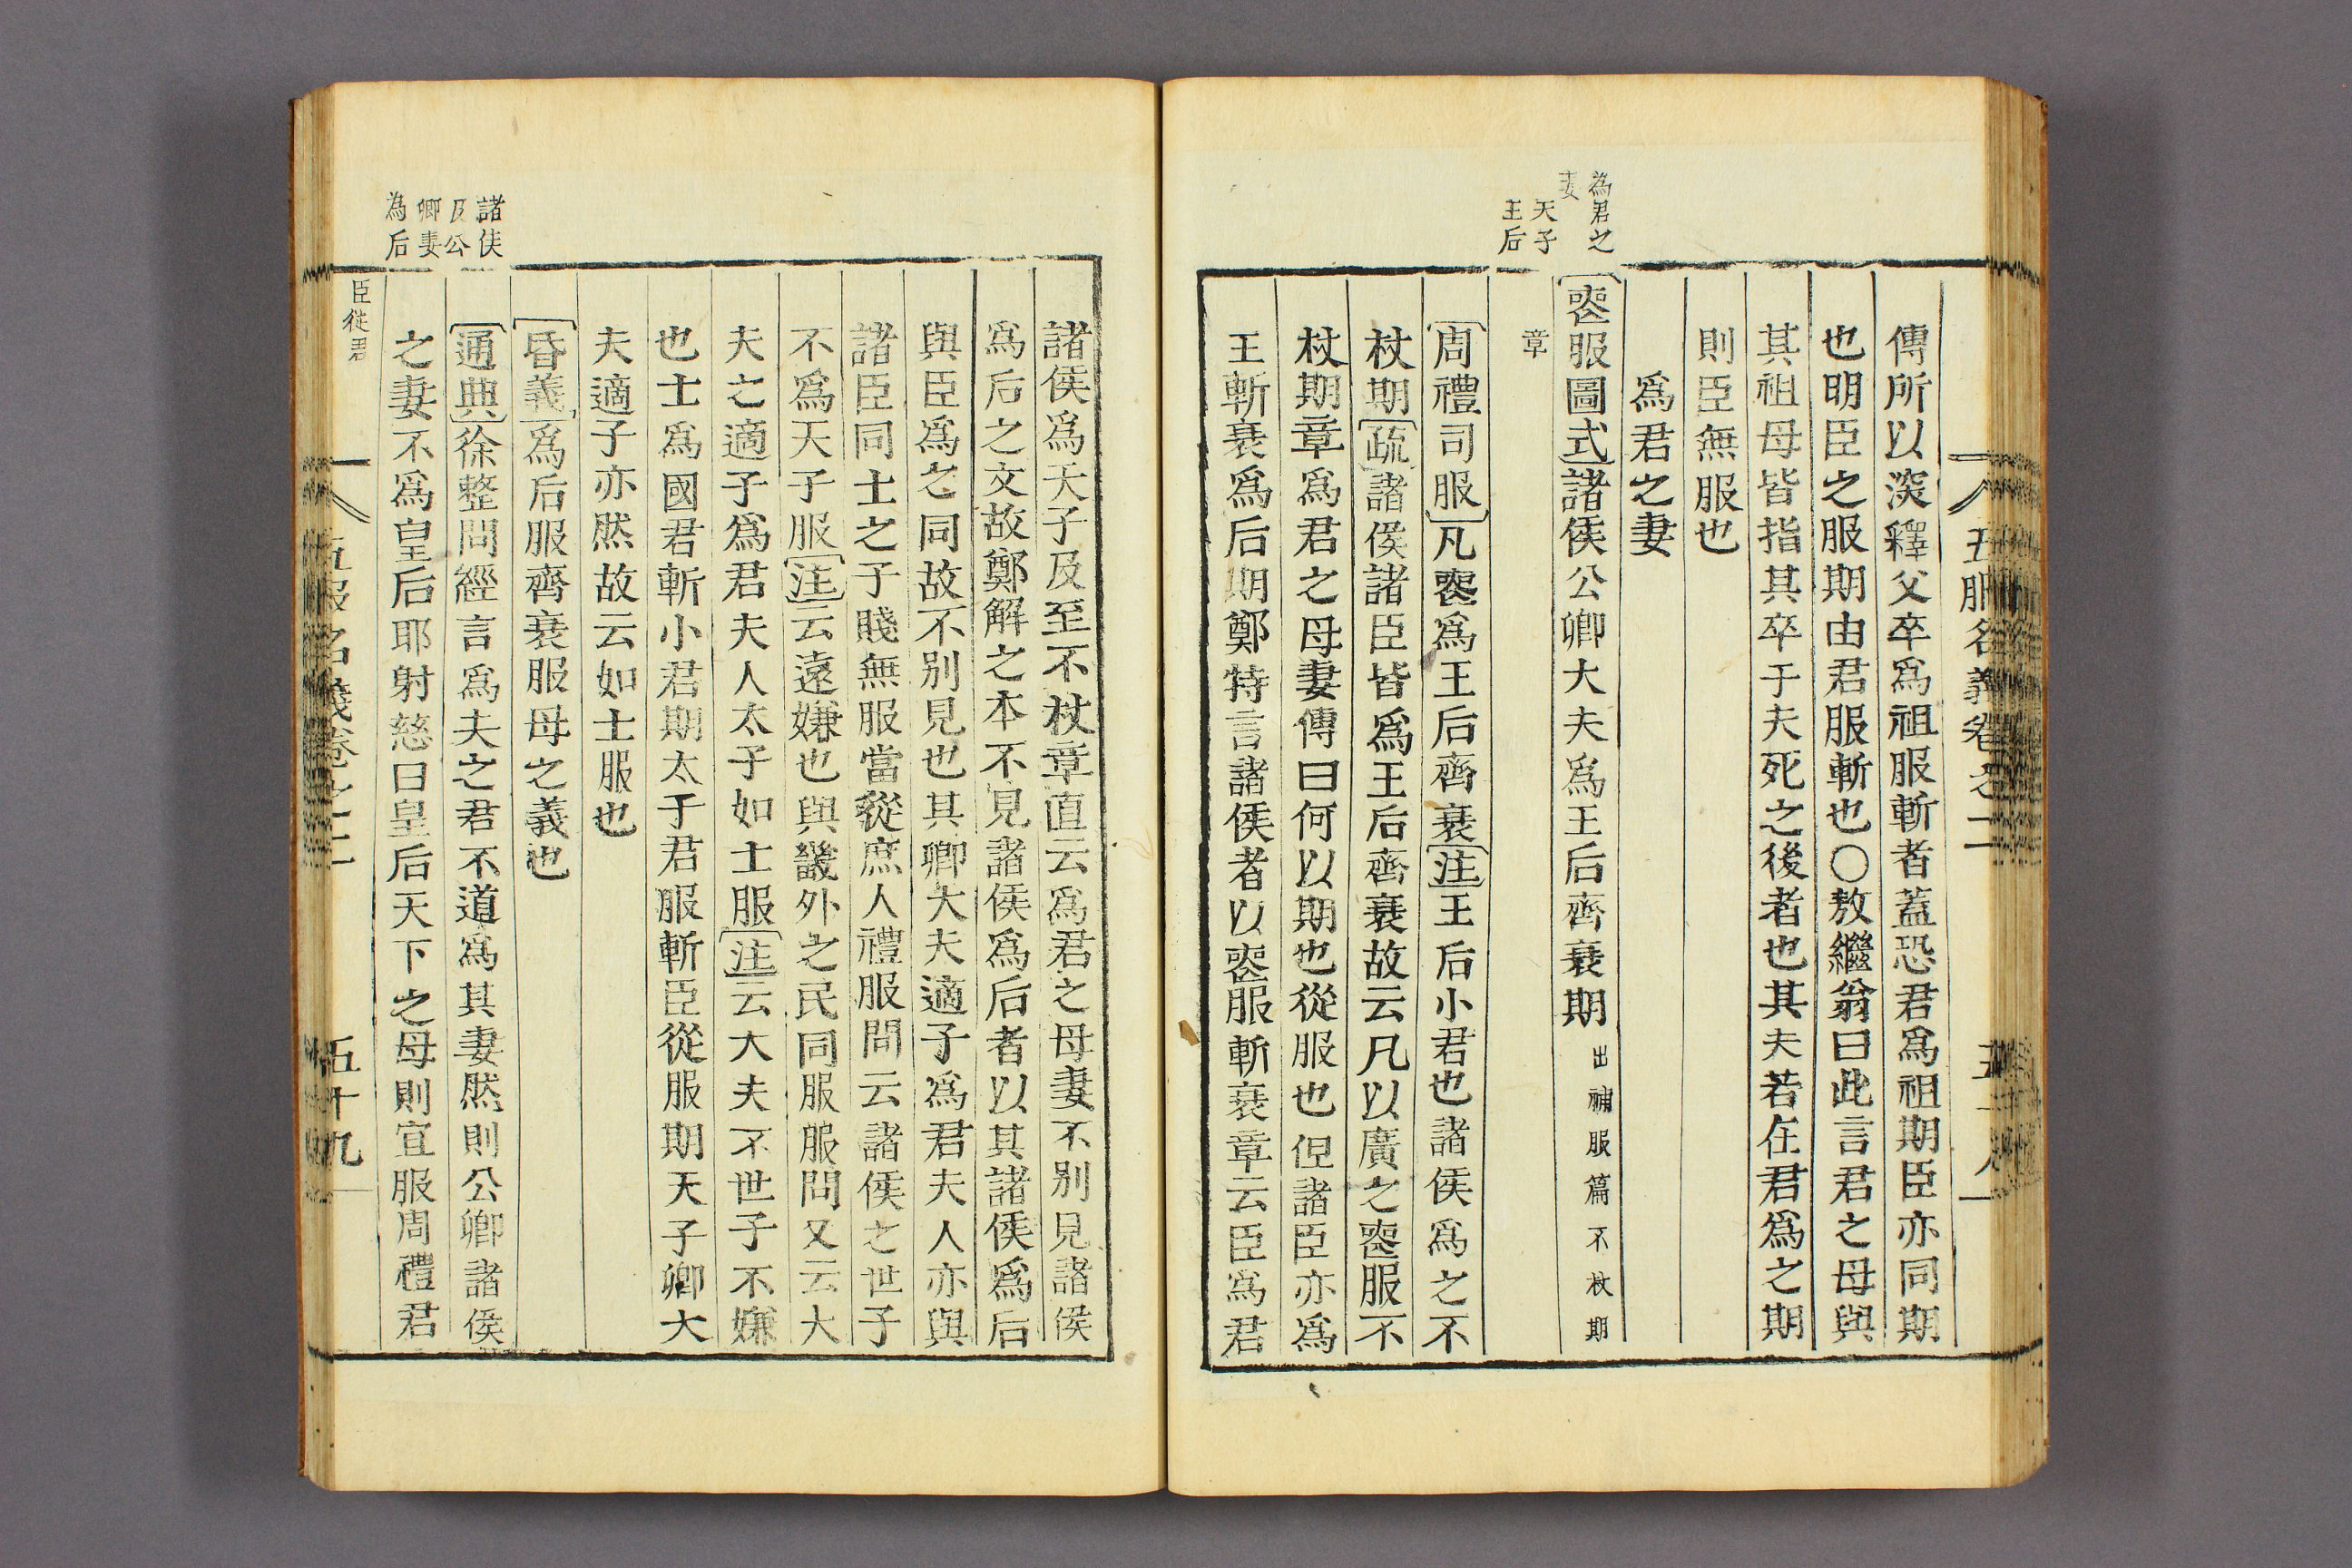 五服名義卷之二
傳所以深釋父卒爲祖服斬者蓋恐君爲祖期臣亦同期
也明臣之服期由君服斬也〇敖繼翁曰此言君之母與
其祖母皆指其卒于夫死之後者也其夫若在君爲之期
則臣無服也
爲君之妻
為君之
妻
天子
王后
〔喪服圖式〕諸侯公卿大夫爲王后齊衰期出補服篇不杖期
章
〔周禮司服〕凡喪爲王后齊衰〔注〕王后小君也諸侯爲之不
杖期〔疏〕諸侯諸臣皆爲王后齊衰故云凡以廣之喪服不
杖期章爲君之母妻傳曰何以期也從服也但諸臣亦爲
王斬衰爲后期鄭特言諸侯者以喪服斬衰章云臣爲君
諸侯爲天子及至不杖章直云爲君之母妻不别見諸侯
爲后之文故鄭解之本不見諸侯爲后者以其諸侯爲后
與臣爲之同故不别見也其卿大夫適子爲君夫人亦與
諸臣同士之子賤無服當從庶人禮服問云諸侯之世子
不爲天子服〔注〕云遠嫌也與畿外之民同服服問又云大
夫之適子爲君夫人太子如士服〔注〕云大夫不世子不嫌
也士爲國君斬小君期太子君服斬臣從服期天子卿大
夫適子亦然故云如士服也
〔昏義〕爲后服齊衰服母之義也
諸侯
及公
卿妻
為后
〔通典〕徐整問經言爲夫之君不道爲其妻然則公卿諸侯
之妻不爲皇后耶射慈曰皇后天下之母則宜服周禮君
臣從君
五服名義卷之二
五十九